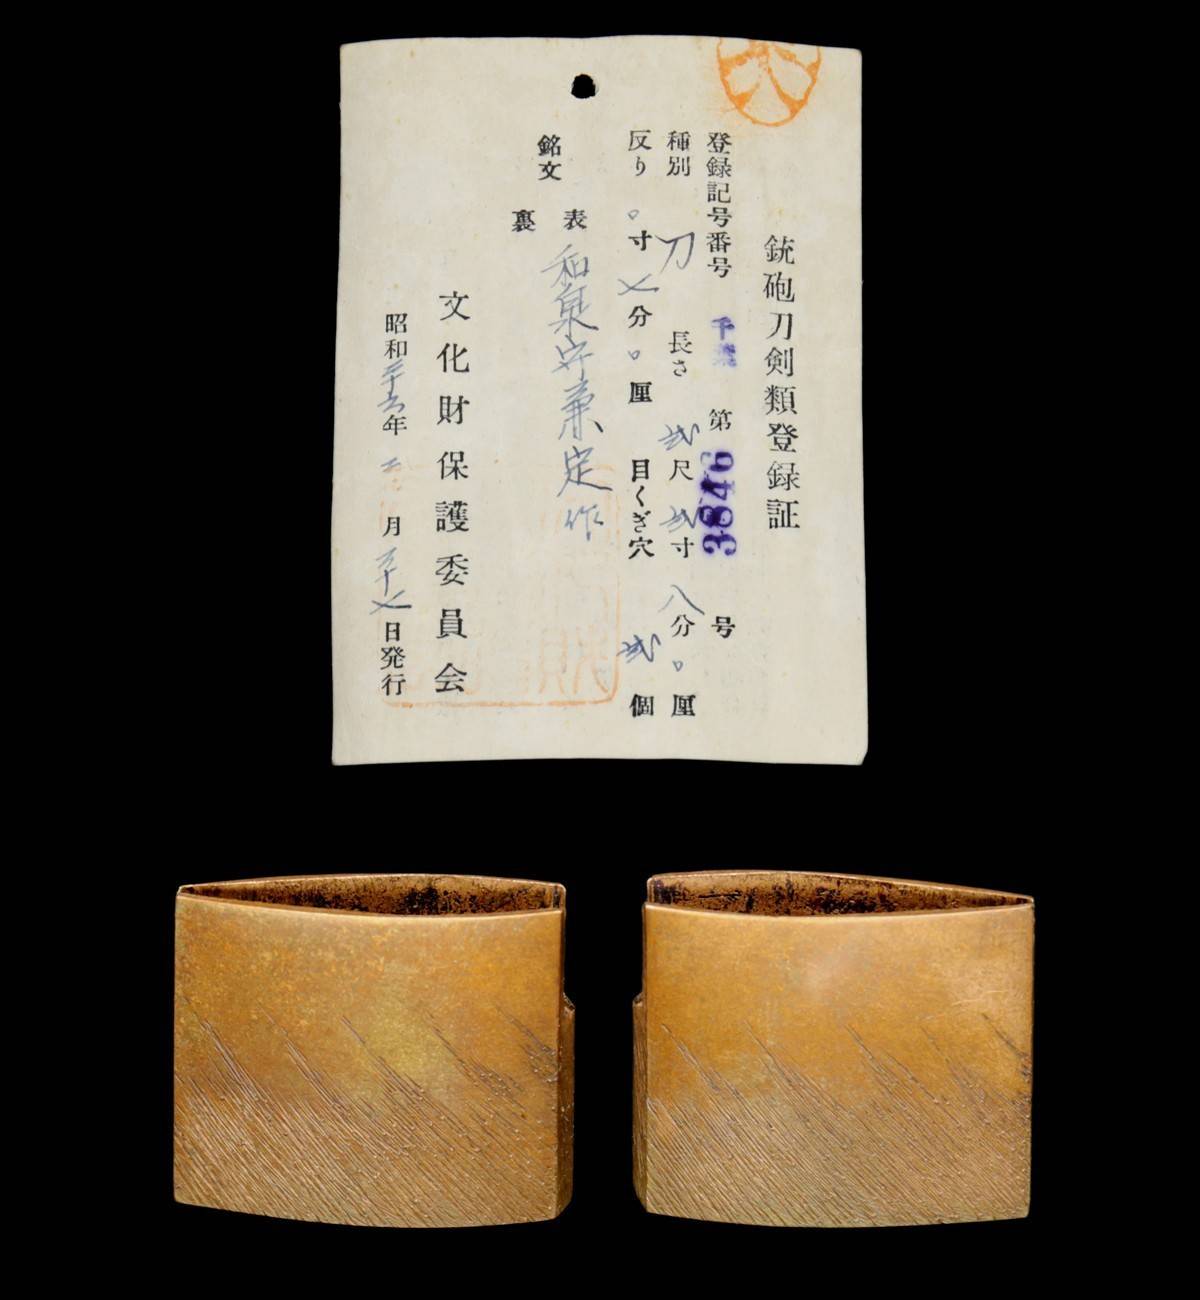 銃砲刀剣類登録証
登録記号番号 千葉 第 3846 号
種別 刀 長さ 弐尺弐寸八分〇厘
反り 〇寸七分〇厘 目くぎ穴 弐個
銘文
表 和泉守兼定作
裏
文化財保護委員会
昭和三十六年 月二十七日発行